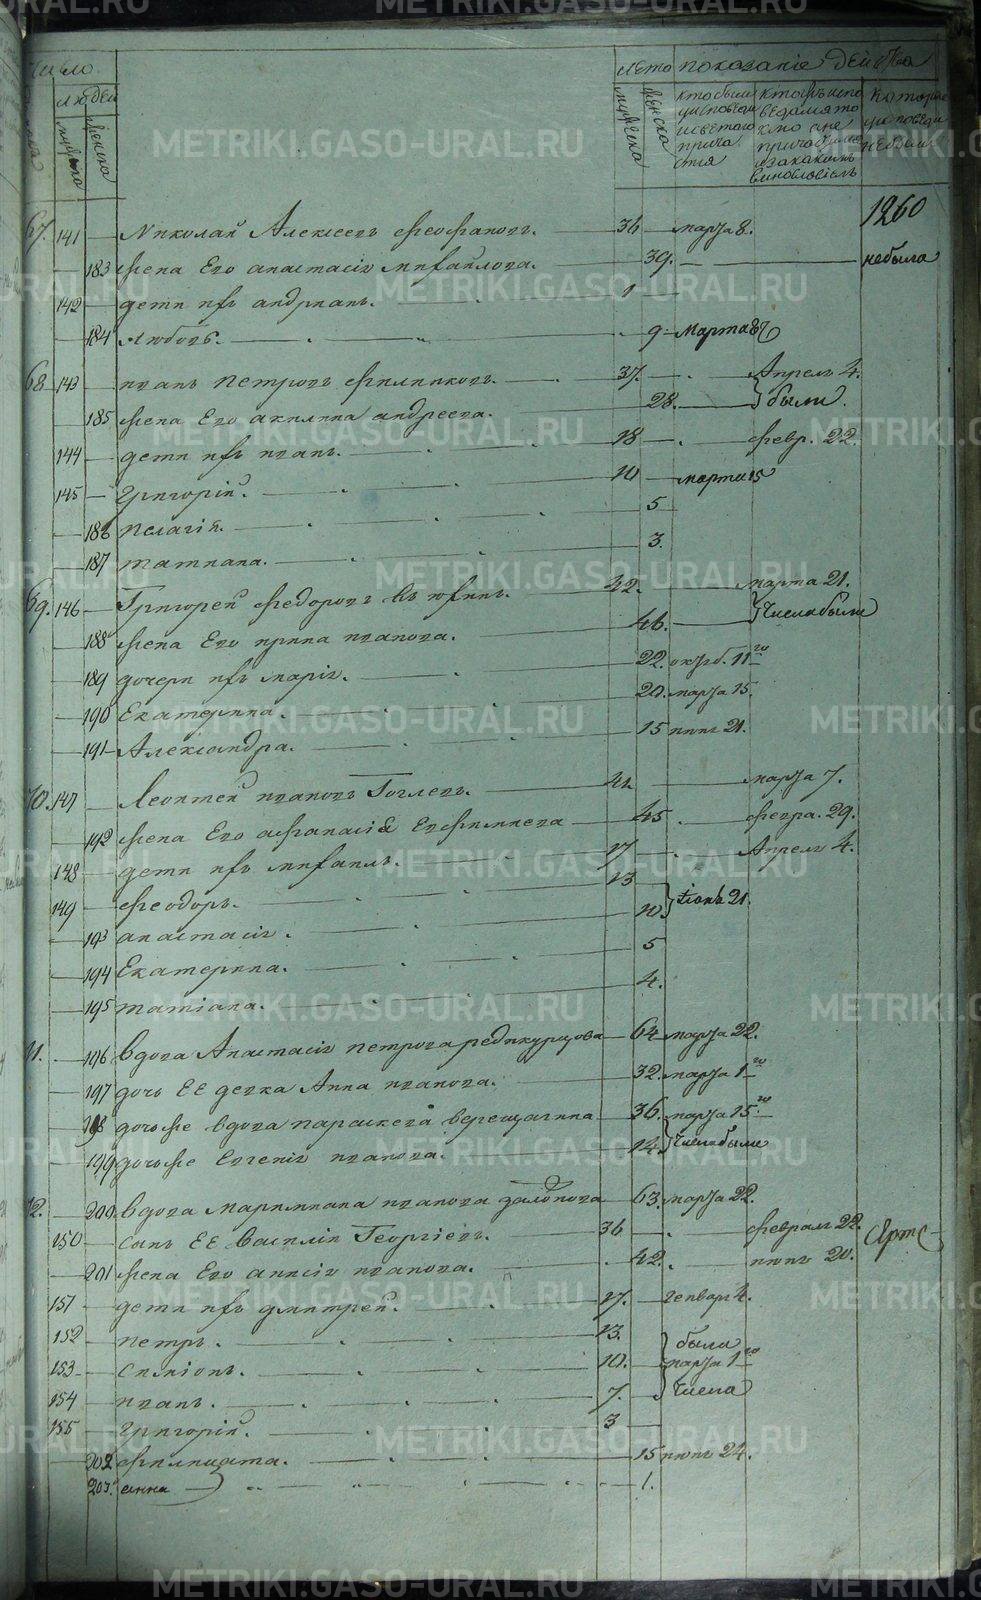 число
людей
мужска
женска
лето
показаніе действа
мужеска
женска
кто были
у исповеди
и святаго
прича
стія
кто исповедался
1260
67. 141 Николай Алексеевъ Феофановъ. 36 марта 8.
183 жена Его анастасія михайлова. 39. небыла
142 дети ихъ андрианъ. 1
184 любовь. 9 Марта 8го
68 143 иванъ Петровъ Филиповъ. 37. Апрель 4.
185 жена Его акилина андреева. 28. были.
144 дети ихъ иванъ. 18 февр. 22.
145 Григорій. 10 марта 15
186 пелагія. 5
187 татиана. 3.
69. 146 Григорей Федоровъ 42. марта 21.
188 жена Его ирина иванова. 46. Числа были
189 дочери ихъ марія. 22. октб. 11го
190 Екатерина. 20. марта 15
191 Александра. 15 июн 21.
70. 147 Леонтей ивановъ Гоглевъ. 41. марта 7.
192 жена Его афанасія Евфимиева 45 февра. 29.
148 дети ихъ михаилъ. 17 Апрель 4.
149 феодоръ. 13 Іюнь 21.
193 анастасія. 10
194 Екатерина. 5
195 татіана. 4.
71. 196 вдова Анастасія петрова редикурцова 64 марта 22.
197 дочь ЕЕ девка Анна иванова. 32. марта 1го
198 дочь же вдова параскева верещагина 36. марта 15го
199 дочь же Евгенія иванова. 14. Числа были
72. 200 вдова маримиана иванова 63. марта 22.
150 сынъ ЕЕ Василій Георгіевъ. 36 февраль 22.
201 жена Его анисія иванова. 42. июнь 20.
151 дети ихъ дмитрей. 17. Генварь 4.
152 петръ. 13. были
153 симіонъ. 10. марта 1го
154 иванъ. 7. Числа
155 Григорій. 3
202 филицата. 15 июнь 24.
203 анна 1.
METRIKI.GASO-URAL.RU